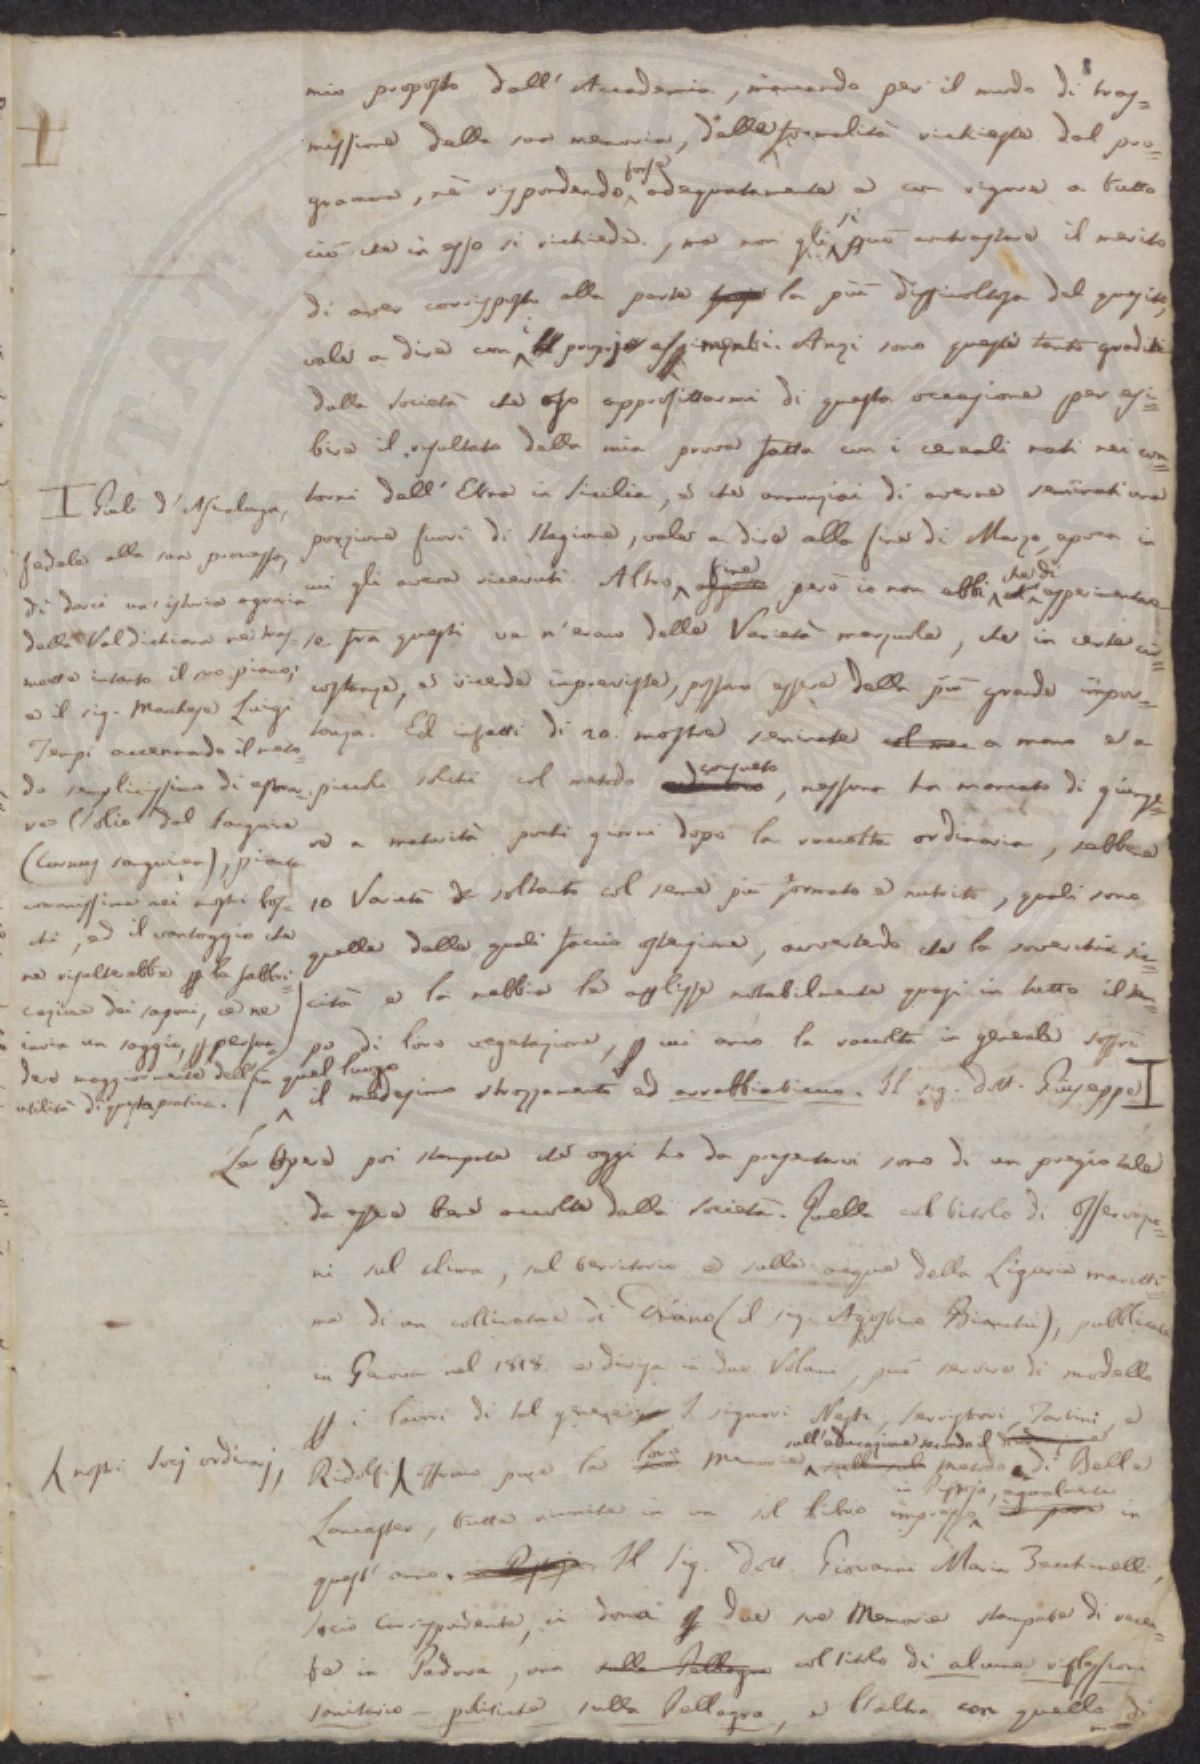 mio proposto dall'Accademia, mancando per il modo di tras=
missione della sua memoria, dalle formalità richieste dal pro=
gramma, nè rispondendo forse adeguatamente e con rigore a tutto
ciò che in esso si richiede, ma non gli si può contrastare il merito
di aver corrisposto alla parte la più difficoltosa del quesito,
vale a dire con i proprj esperimenti. Anzi sono questi tanto graditi
dalla Società che oso approfittarmi di questa occasione per esi=
bire il risultato della mia prova fatta con i cereali nati nei con=
torni dell'Etna in Sicilia, e che annunziai di averne seminati una
porzione fuori di stagione, vale a dire alla fine di Marzo, epoca in
cui gli aveva ricevuti. Altro fine però io non ebbi che di esperimentare
se fra questi ve n'erano delle Varietà marzuole, che in certe cir=
costanze, e vicende impreviste, possono essere della più grande impor=
tanza. Ed infatti di 20. mostre seminate a mano e a
piccoli solchi col metodo consueto, nessuna ha mancato di giunge=
re a maturità pochi giorni dopo la raccolta ordinaria, sebbene
10 Varietà soltanto col seme più formato e nutrito, quali sono
quelle delle quali faccio ostensione, avvertendo che la soverchia sic=
cità e la nebbia le afflisse notabilmente quasi in tutto il tem=
po di loro vegetazione, per cui anno la raccolta in generale soffrì
in quel luogo il medesimo strozzamento ed arrabbiaticcio. Il sig. dott. Giuseppe
I Giuli d'Asinalunga,
fedele alla sua promessa,
di darci un'istoria agraria
della Valdichiana ne tras=
mette intanto il suo piano;
e il sig. Marchese Luigi
Tempi accennando il meto=
do semplicissimo di estrar=
re l'olio dal Sanguine
(Cornus sanguinea), pianta
comunissima nei nostri bos=
chi, ed il vantaggio che
ne risulterebbe per la fabbri=
cazione dei saponi, ce ne
invia un saggio, per persua=
dere maggiormente dell'
utilità di questa pratica.
Le Opere poi stampate che oggi ho da presentarvi sono di un pregio tale
da esser bene accolte dalla Società. Quella col titolo di Osservazio=
ni sul clima, sul territorio e sulle acque della Liguria maritti=
ma di un coltivatore di Diano (il sig. Agostino Bianchi), pubblicata
in Genova nel 1818. e divisa in due Volumi, può servire di modello
per i lavori di tal genere. I signori Nesti, Serristori, Tartini, e
Ridolfi, nostri Socj ordinarj, offrono pure la loro Memoria sull'educazione secondo il metodo di Bell e
Lancaster, tutte riunite in un sol libro impresso in Pistoja, egualmente in
quest'anno. Il Sig. Dott. Giovanni Maria Zecchinelli,
Socio corrispondente, ci dona per due sue Memorie stampate di recen=
te in Padova, una sulla Pellagra col titolo di alcune riflessioni
sanitario-politiche sulla Pellagra, e l'altra con quello di